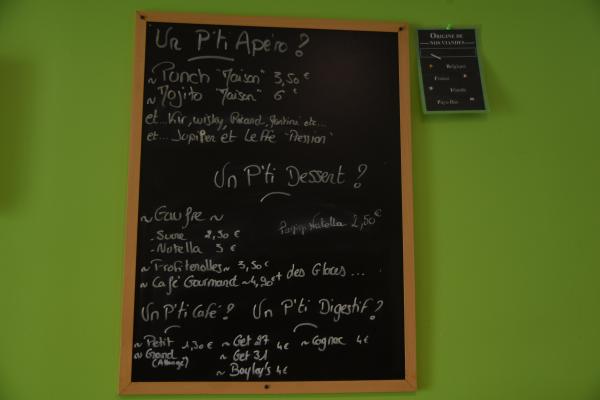 Un P'ti Apéro ?
~ Punch "Maison" 3,50 €
~ Mojito "Maison" 6 €
et... Kir, wisky, Ricard, Martini etc...
et... Jupiler et Leffe "Pression"
Un P'ti Dessert ?
~ Gaufre ~
- Sucre 2,50 €
- Nutella 3 €
Nutella 2,50€
~ Profiterolles ~ 3,50 €
~ Café Gourmand ~ 4,90€
+ des Glaces ...
Un P'ti Café ?
~ Petit 1,30 €
~ Grand
(Allongé)
Un P'ti Digestif ?
~ Get 27 4€
~ Get 31
~ Bayley's 4€
~ Cognac 4€
ORIGINE DE
NOS VIANDES
Belgique
France
Irlande
Pays-Bas